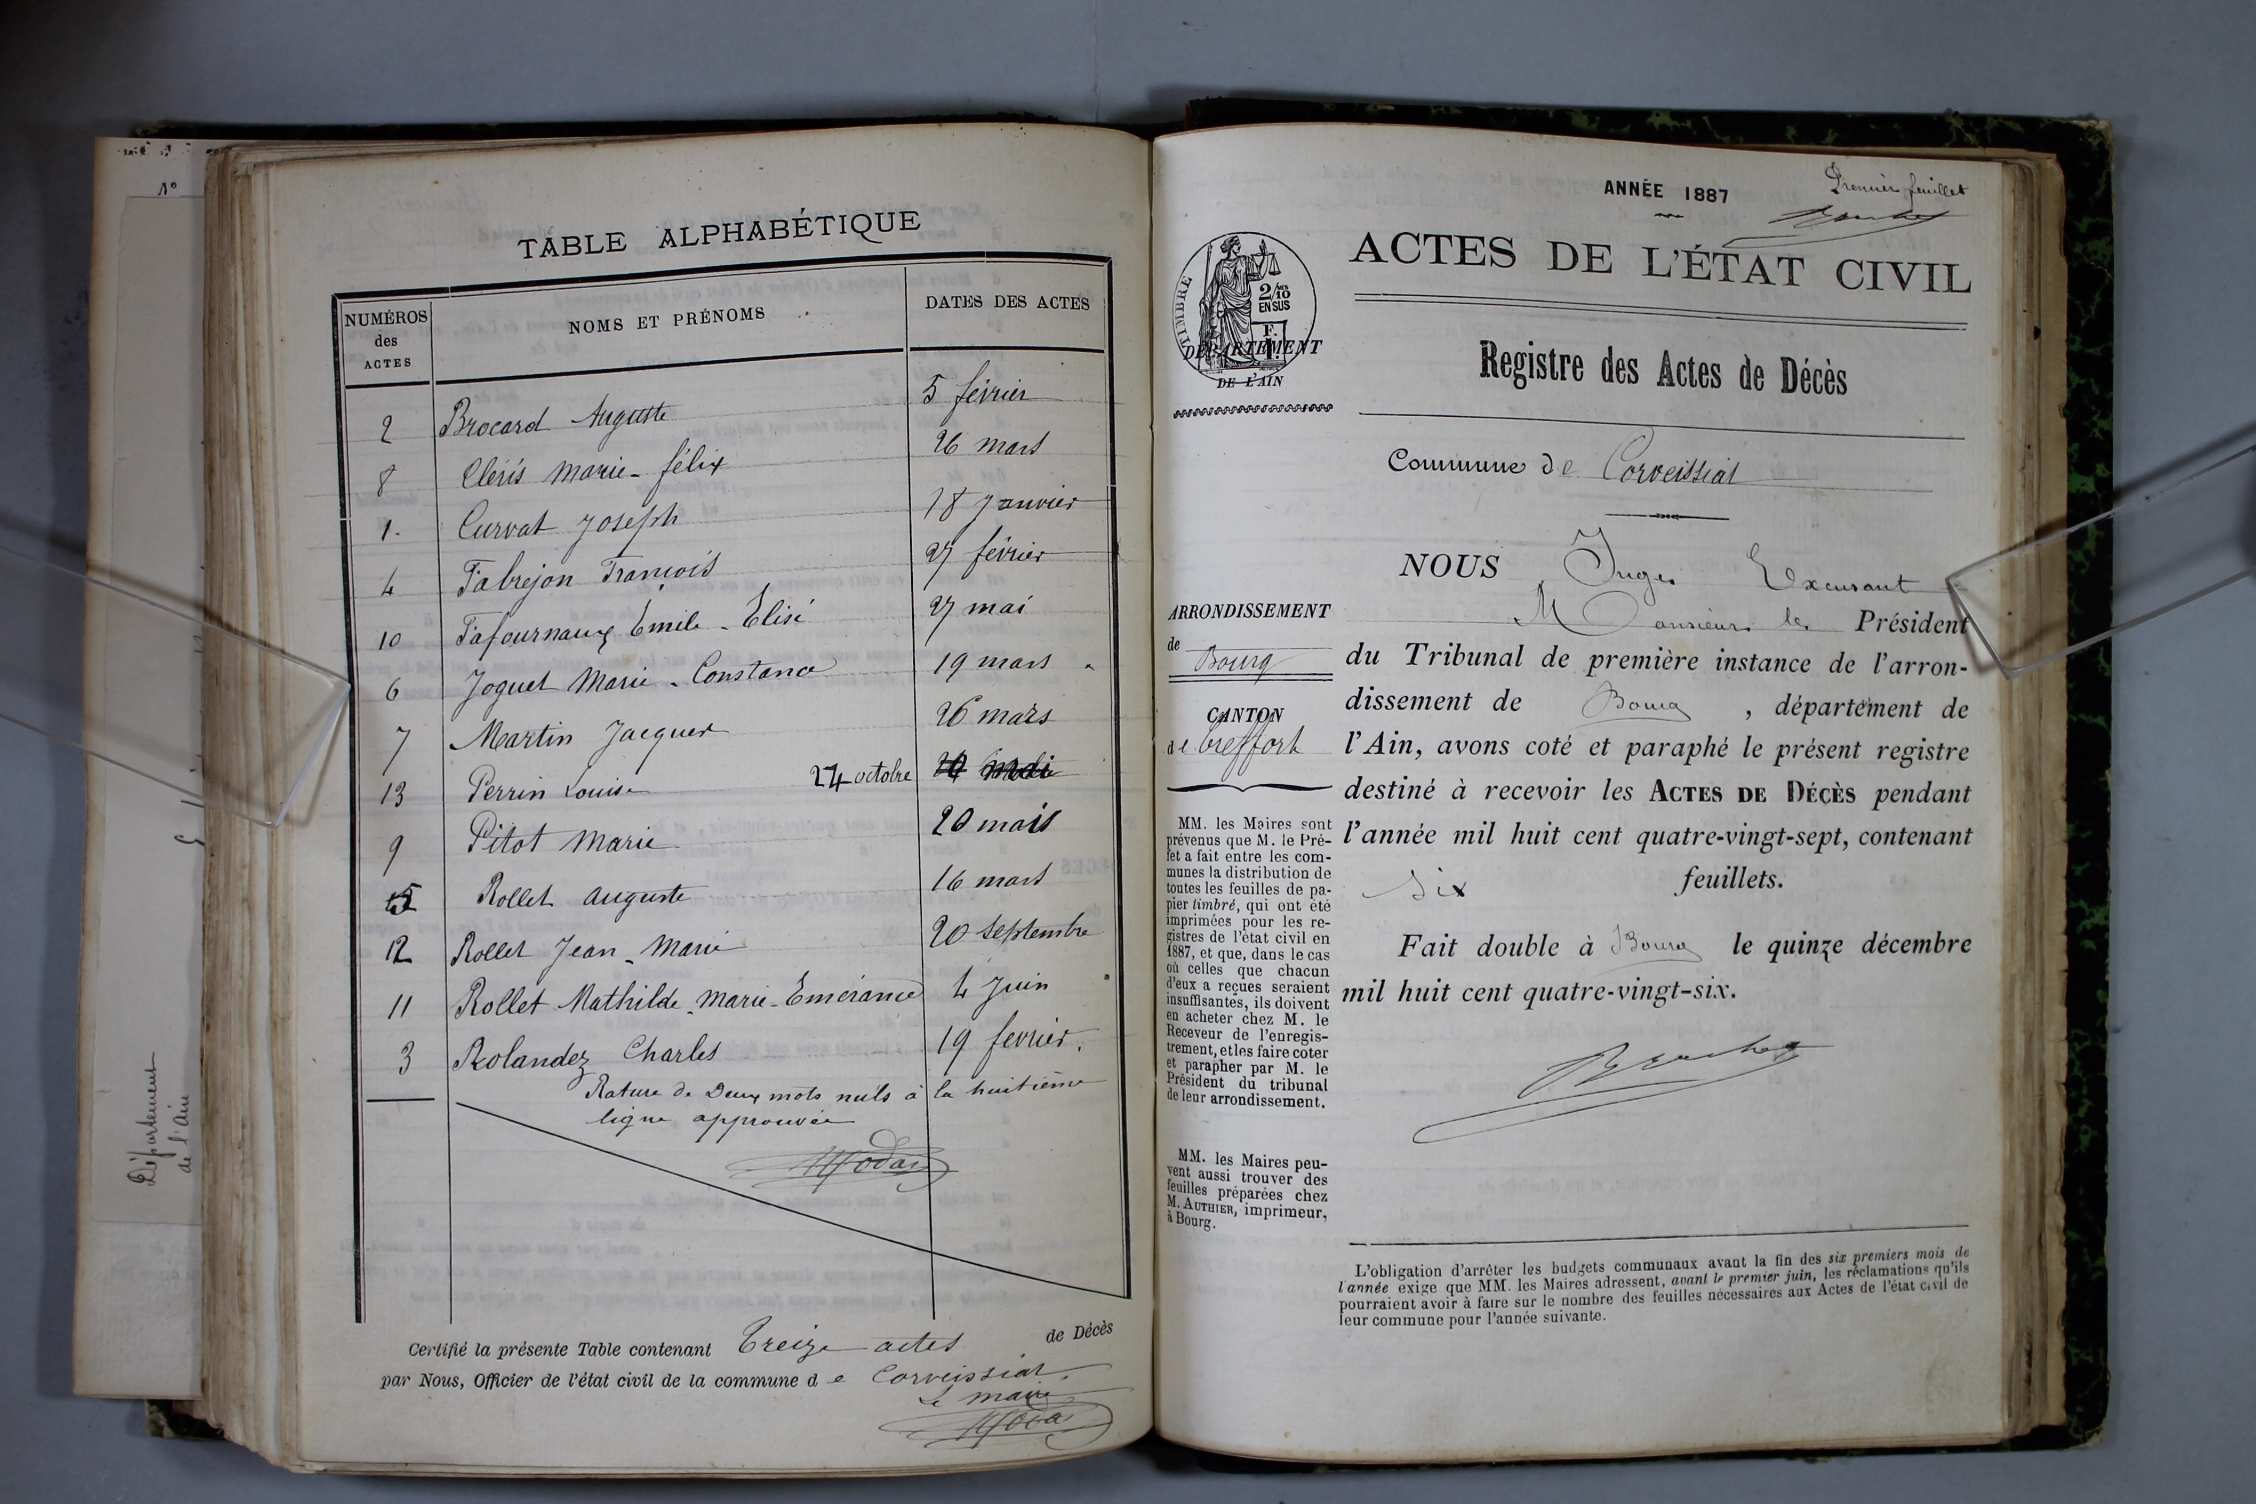 N°
Département
de l'ain
TABLE ALPHABÉTIQUE
NUMÉROS
des
ACTES
NOMS ET PRÉNOMS
DATES DES ACTES
2 Brocard Auguste 5 février
8 Cléris Marie-félix 26 mars
1. Curvat Joseph 18 Janvier
4 Fabrejon François 27 février
10 Fafournaux Emile-Elisé 27 mai
6 Joguet Marie-Constance 19 mars
7 Martin Jacques 26 mars
13 Perrin Louise 24 octobre
9 Pitot Marie 20 mais
5 Rollet Auguste 16 mars
12 Rollet Jean-Marie 20 Septembre
11 Rollet Mathilde-Marie-Emérance 4 Juin
3 Rolandez Charles 19 fevrier.
Rature de Deux mots nuls à la huitième
ligne approuvée
Certifié la présente Table contenant Treize actes de Décès
par Nous, Officier de l'état civil de la commune de Corveissiat.
Le maire
ANNÉE 1887
Premier feuillet
TIMBRE
2/10
EN SUS
DÉPARTEMENT
DE L'AIN
ACTES DE L'ÉTAT CIVIL
Registre des Actes de Décès
Commune de Corveissiat
ARRONDISSEMENT
de Bourg
CANTON
de Treffort
MM. les Maires sont
prévenus que M. le Pré-
fet a fait entre les com-
munes la distribution de
toutes les feuilles de pa-
pier timbré, qui ont été
imprimées pour les re-
gistres de l'état civil en
1887, et que, dans le cas
où celles que chacun
d'eux a reçues seraient
insuffisantes, ils doivent
en acheter chez M. le
Receveur de l'enregis-
trement, et les faire coter
et parapher par M. le
Président du tribunal
de leur arrondissement.
MM. les Maires peu-
vent aussi trouver des
feuilles préparées chez
M. AUTHIER, imprimeur,
à Bourg.
NOUS Juge Excusant
Monsieur le Président
du Tribunal de première instance de l'arron-
dissement de Bourg, département de
l'Ain, avons coté et paraphé le présent registre
destiné à recevoir les ACTES DE DÉCÈS pendant
l'année mil huit cent quatre-vingt-sept, contenant
six feuillets.
Fait double à Bourg le quinze décembre
mil huit cent quatre-vingt-six.
L'obligation d'arrêter les budgets communaux avant la fin des six premiers mois de
l'année exige que MM. les Maires adressent, avant le premier juin, les réclamations qu'ils
pourraient avoir à faire sur le nombre des feuilles nécessaires aux Actes de l'état civil de
leur commune pour l'année suivante.